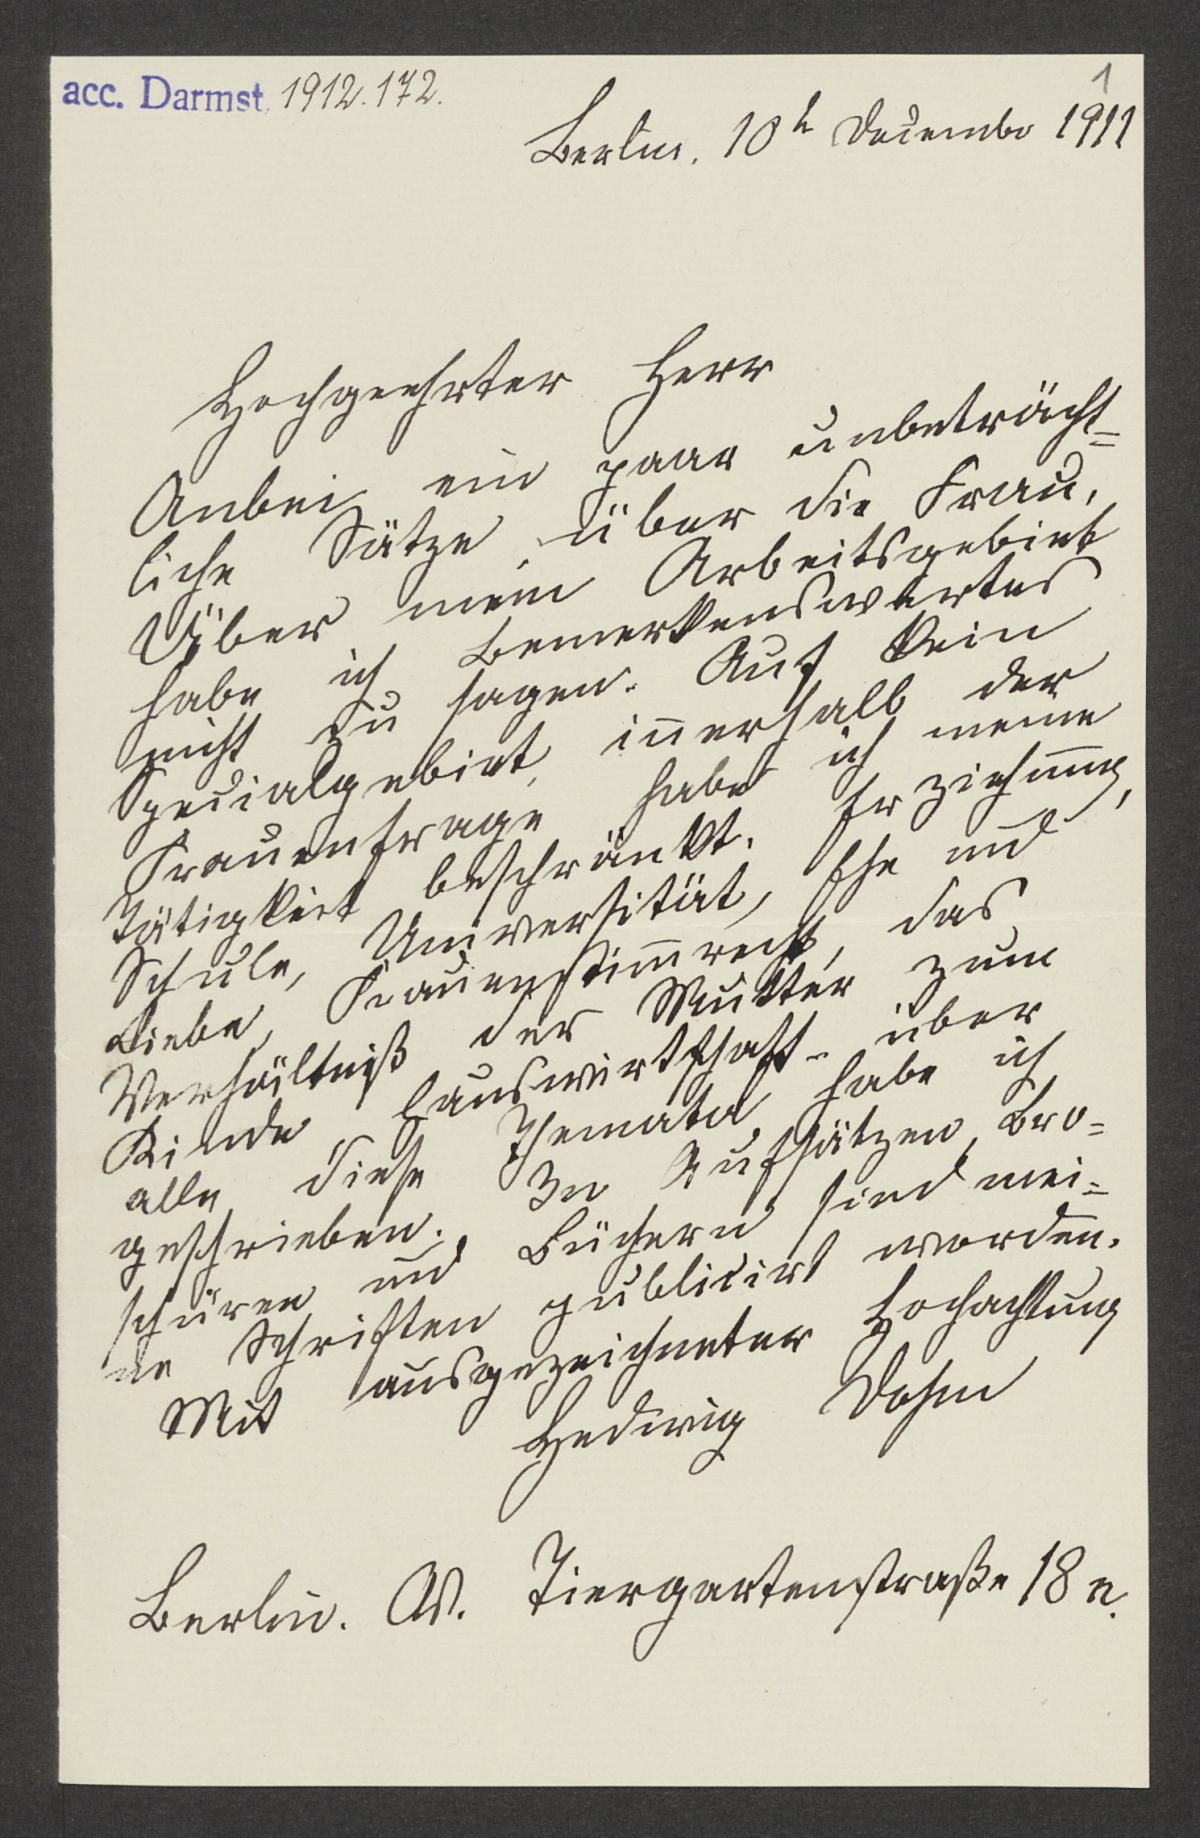 acc. Darmst. 1912.172.
1
Berlin. 10t Dezember 1911
Hochgeehrter Herr
Anbei ein paar unbeträcht=
liche Sätze über die Frau.
Über mein Arbeitsgebiet
habe ich bemerkenswertes
nicht zu sagen. Auf kein
Specialgebiet innerhalb der
Frauenfrage habe ich meine
Tätigkeit beschränkt. Erziehung,
Schule, Universität, Ehe und
Liebe, Frauenstimmrecht, das
Verhältniß der Mutter zum
Kinde, Hauswirtschaft – über
alle diese Themata habe ich
geschrieben. In Aufsätzen, Bro=
schüren und Büchern sind mei=
ne Schriften publicirt worden.
Mit ausgezeichneter Hochachtung
Hedwig Dohm
Berlin. W. Tiergartenstraße 18